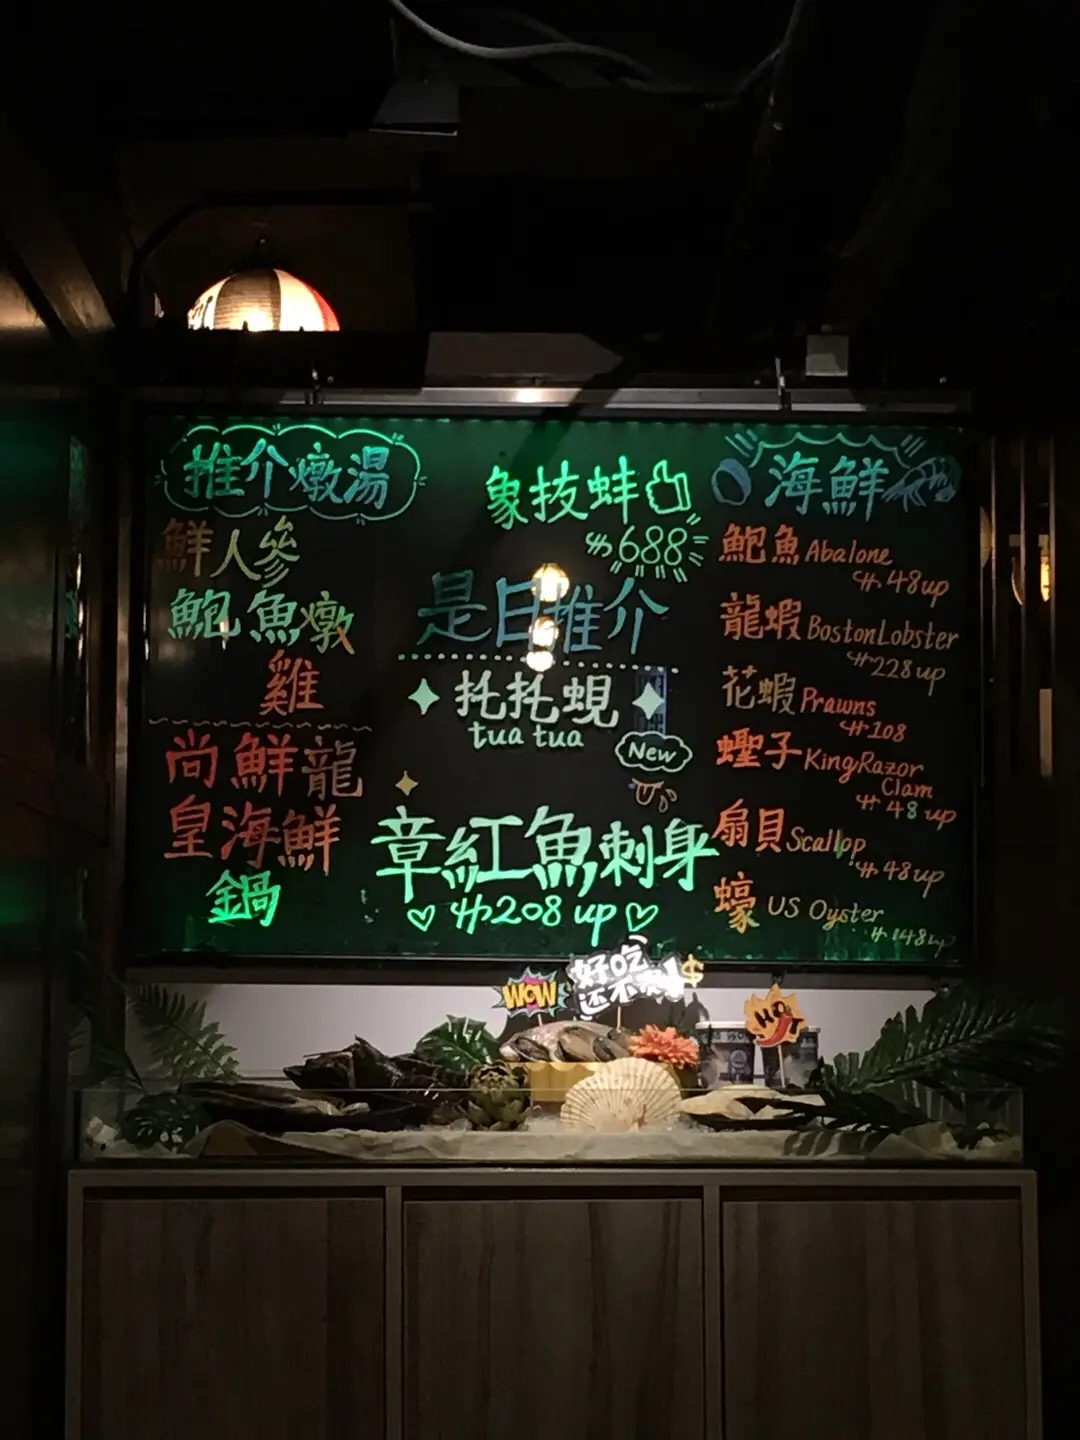 推介燉湯
鮮人參
鮑魚燉
雞
尚鮮龍
皇海鮮
鍋
象拔蚌
$688
是日推介
扥扥蜆
tua tua
New
章紅魚刺身
$208 up
海鮮
鮑魚 Abalone
$48up
龍蝦 Boston Lobster
$228up
花蝦 Prawns
$108
蟶子 King Razor
Clam
$48 up
扇貝 Scallop
$48up
蠔 US Oyster
$148up
WOW
好吃
还不
$
HOT